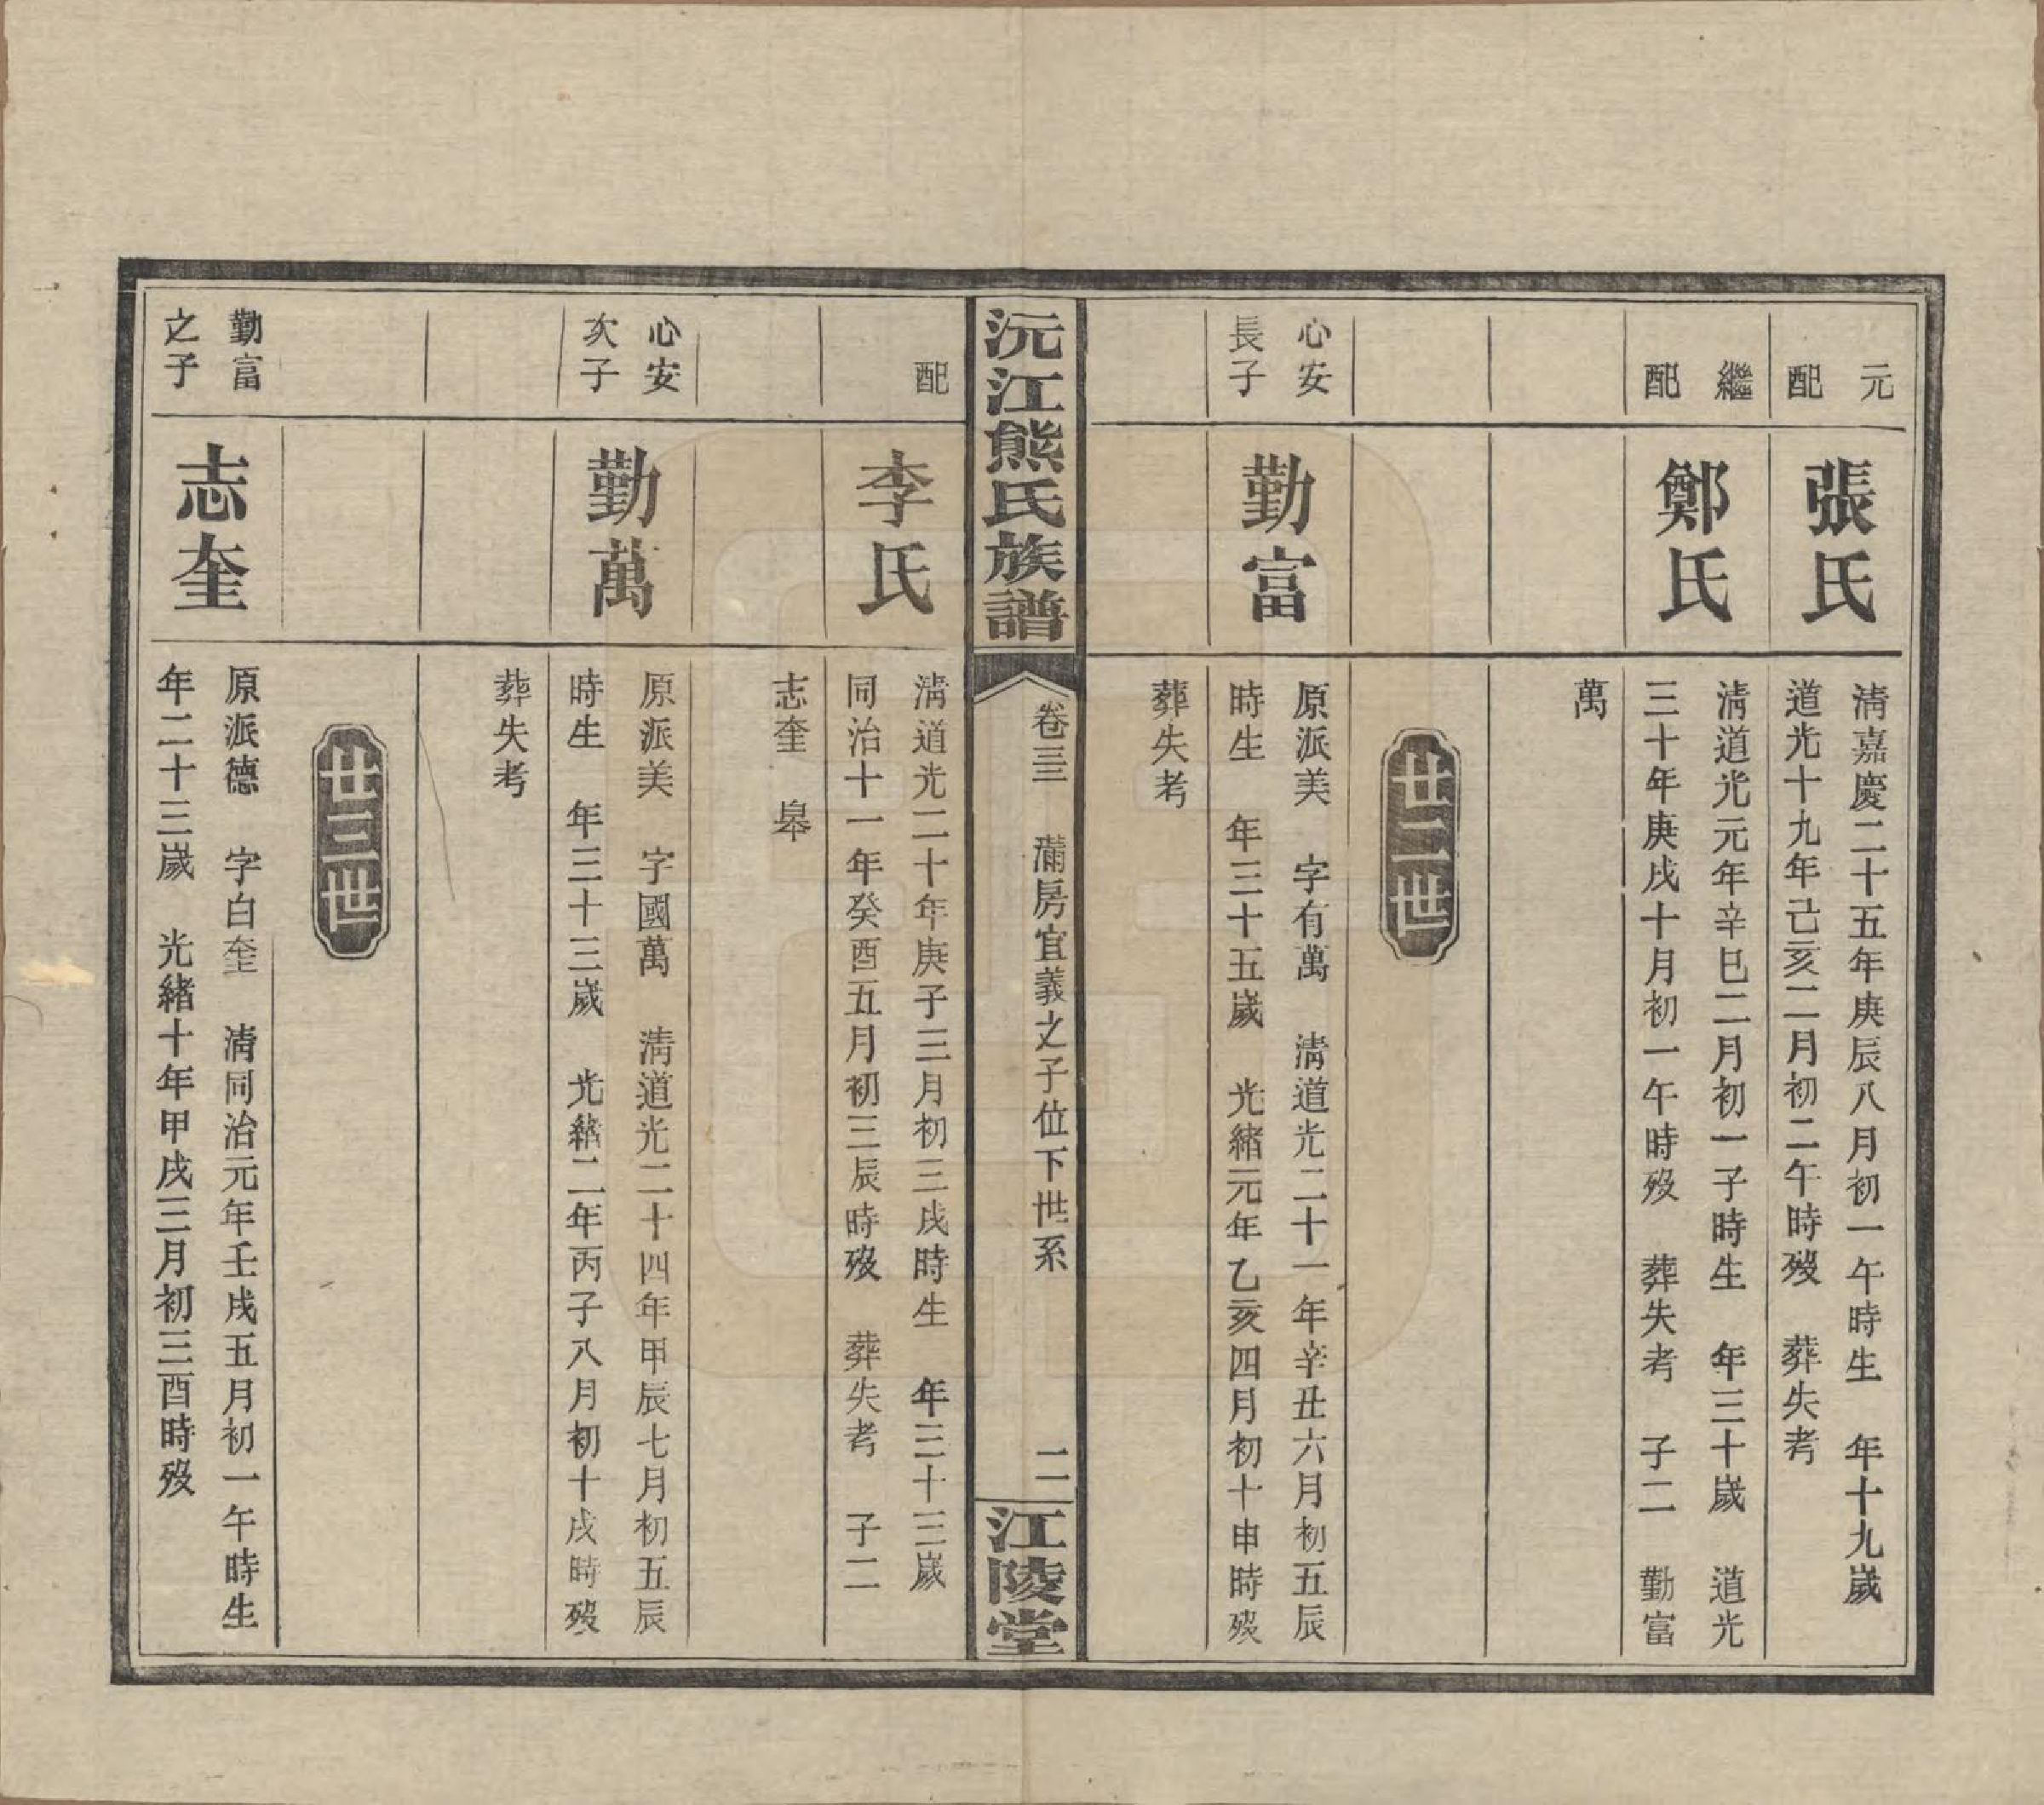 元
配
張氏
清嘉慶二十五年庚辰八月初一午時生　年十九歲
道光十九年己亥二月初二午時歿　葬失考
繼
配
鄭氏
清道光元年辛巳二月初一子時生　年三十歲　道光
三十年庚戌十月初一午時歿　葬失考　子二　勤富
萬
廿二世
心安
長子
勤富
原派美　字有萬　清道光二十一年辛丑六月初五辰
時生　年三十五歲　光緒元年乙亥四月初十申時歿
葬失考
沅江熊氏族譜
卷三　滿房宜義之子位下世系
二
江陵堂
配
李氏
清道光二十年庚子三月初三戌時生　年三十三歲
同治十一年癸酉五月初三辰時歿　葬失考　子二
志奎　皋
心安
次子
勤萬
原派美　字國萬　清道光二十四年甲辰七月初五辰
時生　年三十三歲　光緒二年丙子八月初十戌時歿
葬失考
廿三世
勤富
之子
志奎
原派德　字白奎　清同治元年壬戌五月初一午時生
年二十三歲　光緒十年甲戌三月初三酉時歿